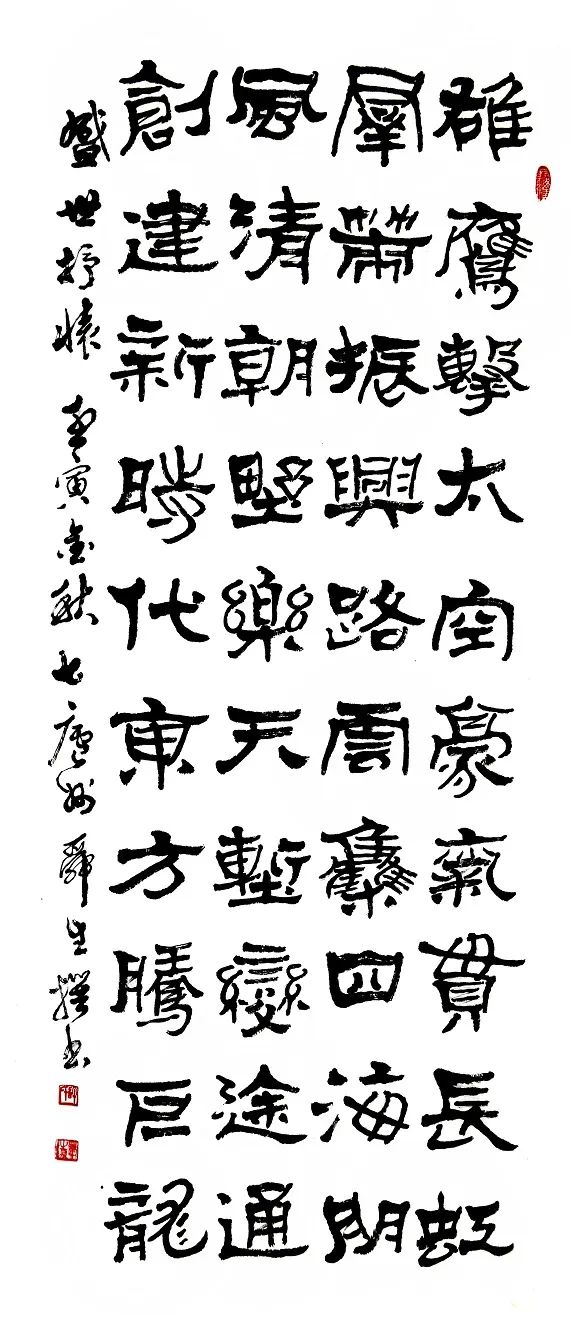 雄鷹擊太空豪氣貫長虹
羣策振興路雲雧四海朋
風清朝野樂天塹變途通
創建新時代東方騰巨龍
盛世抒懷 壬寅金秋 廬州 舜生撰书